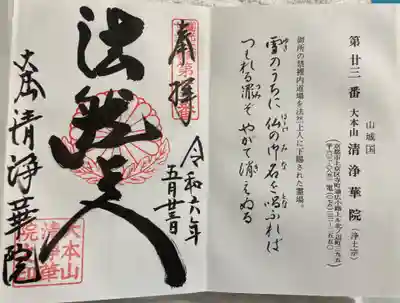 山城国
第廿三番 大本山 清浄華院(浄土宗)
御所の禁裡内道場を法然上人に下賜された霊場。
雪のうちに 仏の御名を 唱ふれば
つもれる罪ぞ やがて消えぬる
奉拝
令和六年
五月廿三日
法然上人
大本山清浄華院
大本山
清浄華
院印